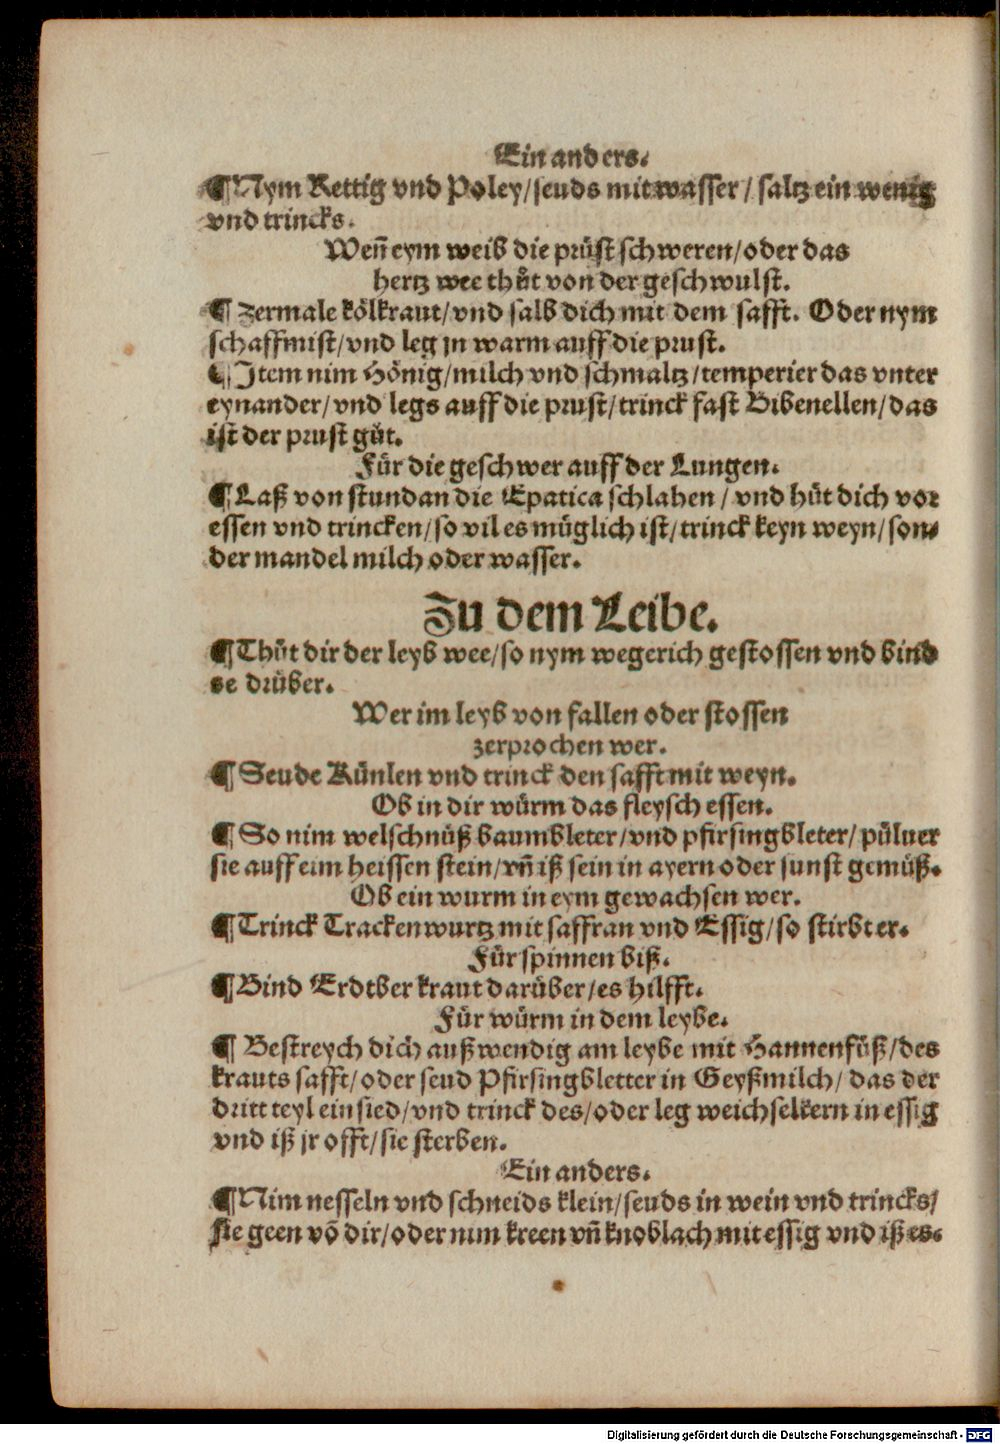 Ein anders.
¶ Nym Rettig vnd Poley/seuds mit wasser/ saltz ein wenig
vnd trincks.
Weñ eym weib die prüst schweren/oder das
hertz wee thůt von der geschwulst.
¶ Zermale kölkraut/vnd salb dich mit dem safft. Oder nym
schaffmist/vnd leg jn warm auff die prust.
¶ Item nim Hönig/milch vnd schmaltz/temperier das vnter
eynander/vnd legs auff die prust/trinck fast Bibenellen/das
ist der prust gůt.
Für die geschwer auff der Lungen.
¶ Laß von stund an die Epatica schlahen/ vnd hůt dich vor
essen vnd trincken/so vil es müglich ist/trinck keyn weyn/son⸗
der mandel milch oder wasser.
Zu dem Leibe.
¶ Thůt dir der leyb wee/so nym wegerich gestossen vnd bind
se drüber.
Wer im leyb von fallen oder stossen
zerprochen wer.
¶ Seude Künlen vnd trinck den safft mit weyn.
Ob in dir würm das fleysch essen.
¶ So nim welschnüß baumbleter/vnd pfirsingbleter/ püluer
sie auff eim heissen stein/vñ iß sein in ayern oder sunst gemüß.
Ob ein wurm in eym gewachsen wer.
¶ Trinck Trackenwurtz mit saffran vnd Essig/so stirbt er.
Für spinnen biß.
¶ Bind Erdtber kraut darüber/es hilfft.
Für würm in dem leybe.
¶ Bestreych dich außwendig am leybe mit Hannenfůß/des
krauts safft/oder seud Pfirsingbletter in Geyßmilch/ das der
dritt teyl ein sied/vnd trinck des/oder leg weichselkern in essig
vnd iß jr offt/sie sterben.
Ein anders.
¶ Nim nesseln vnd schneids klein/seuds in wein vnd trincks/
sie geen võ dir/oder nim kreen vñ knoblach mit essig vnd iß es.
Digitalisierung gefördert durch die Deutsche Forschungsgemeinschaft - DFG